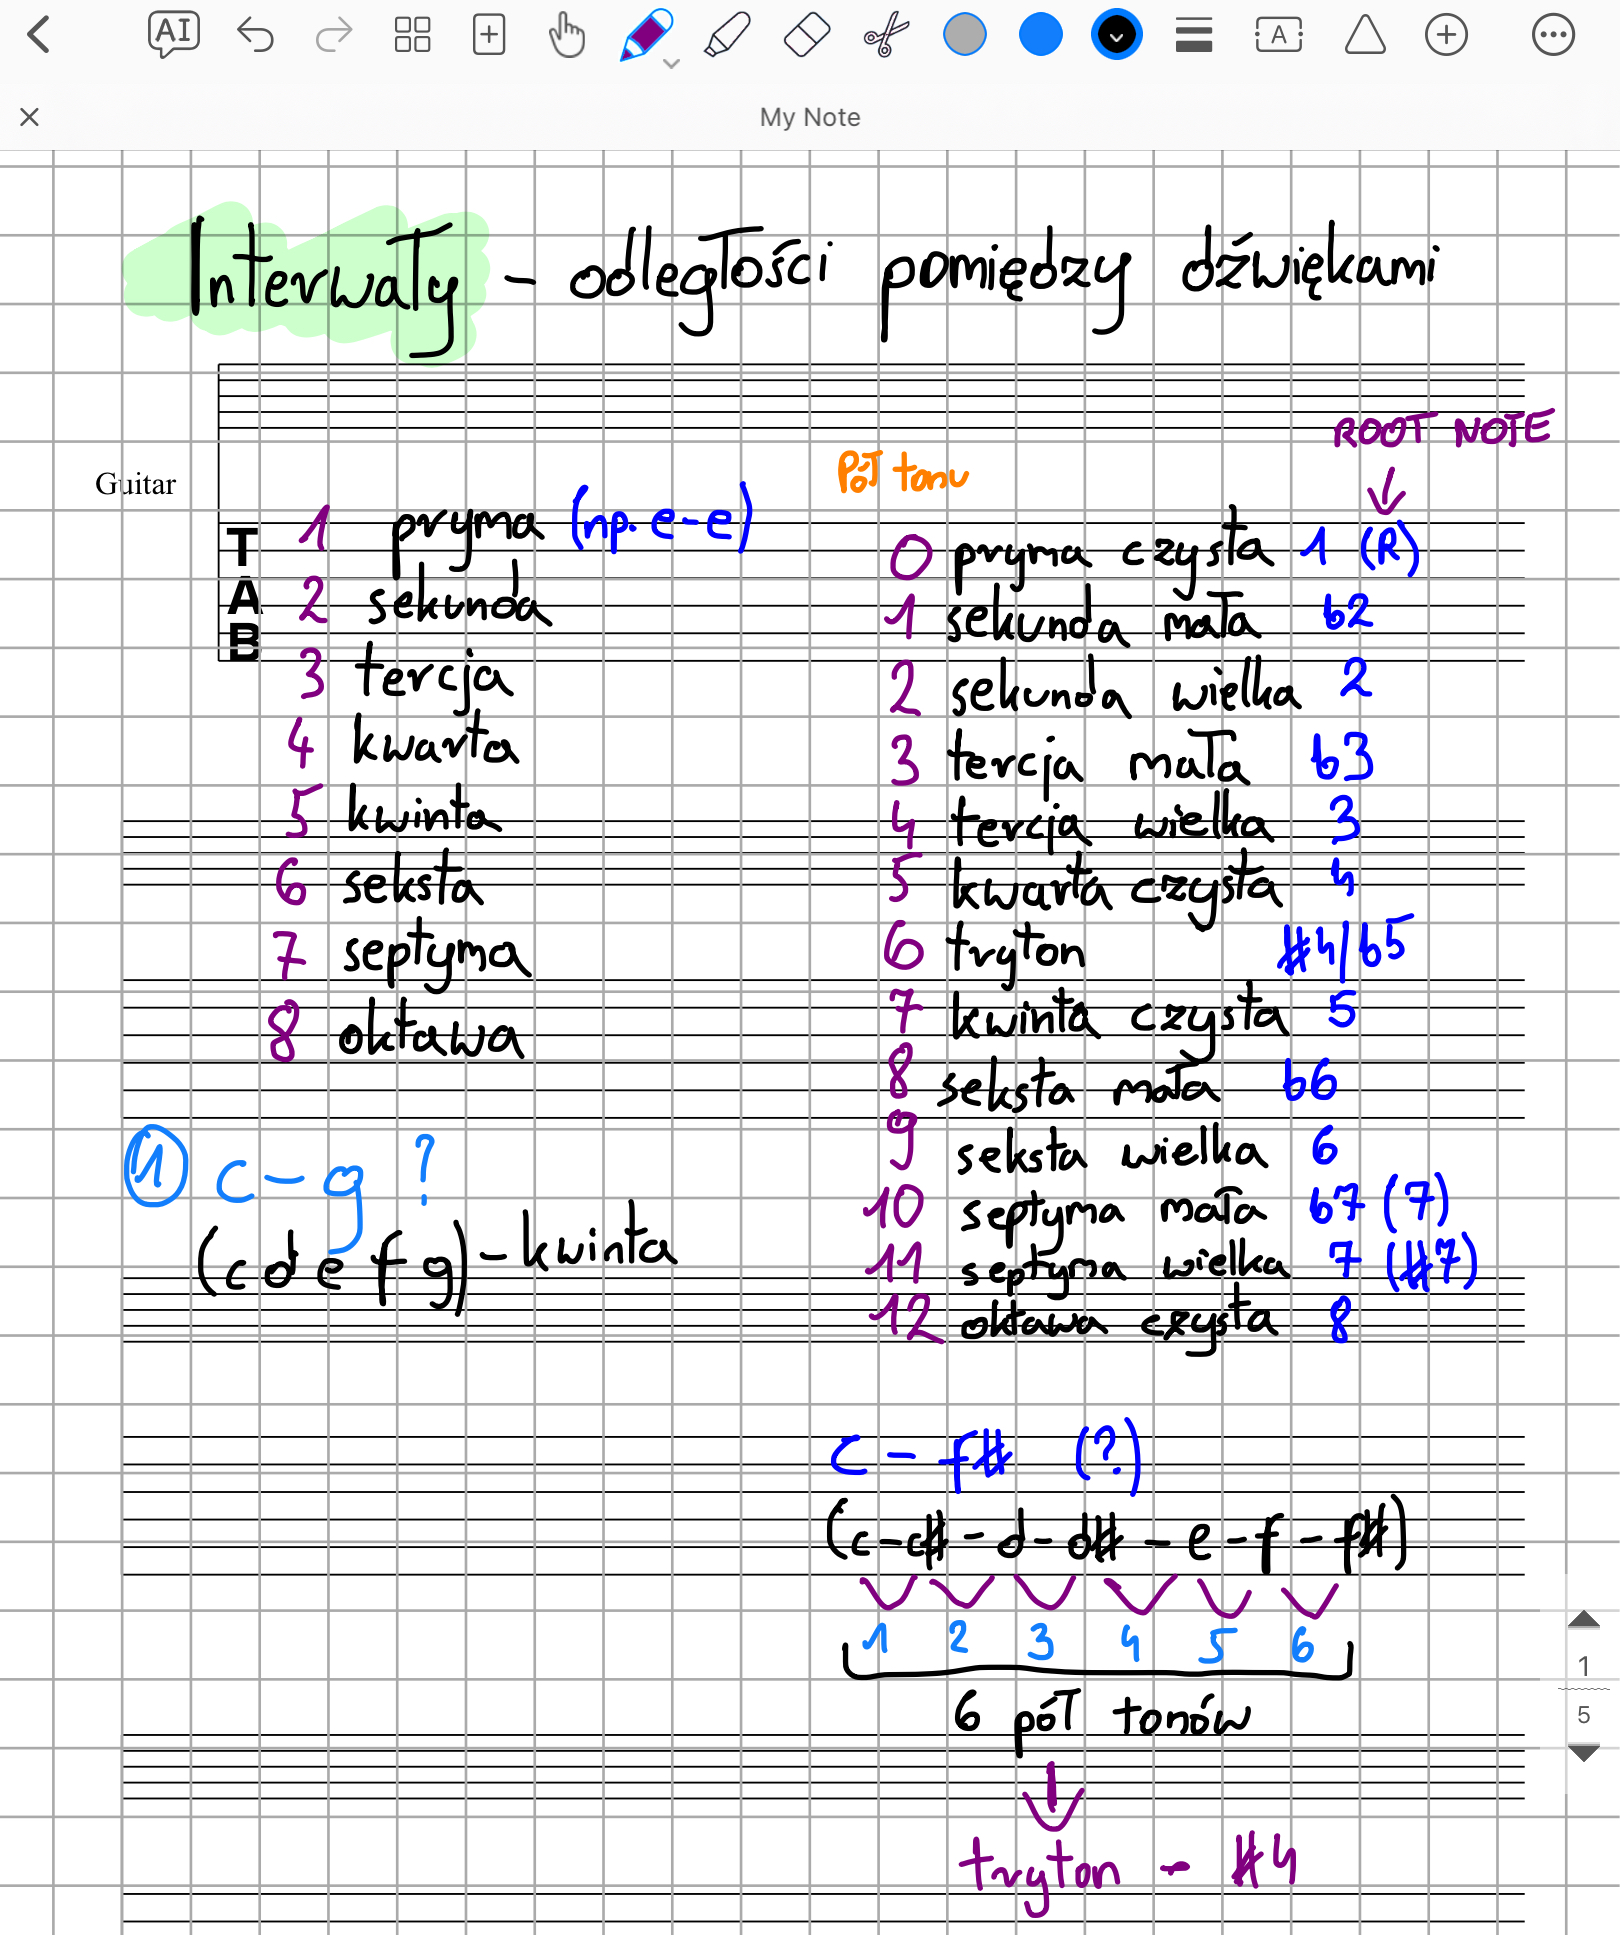 AI
A
My Note
Interwały - odległości pomiędzy dźwiękami
ROOT NOTE
Guitar
TAB
1 pryma (np. e-e)
2 sekunda
3 tercja
4 kwarta
5 kwinta
6 seksta
7 septyma
8 oktawa
pół tonu
0 pryma czysta 1 (R)
1 sekunda mała b2
2 sekunda wielka 2
3 tercja mała b3
4 tercja wielka 3
5 kwarta czysta 4
6 tryton #4/b5
7 kwinta czysta 5
8 seksta mała b6
9 seksta wielka 6
10 septyma mała b7 (7)
11 septyma wielka 7 (#7)
12 oktawa czysta 8
1 c - g ?
(c d e f g) - kwinta
c - f# (?)
(c - c# - d - d# - e - f - f#)
1 2 3 4 5 6
6 pół tonów
tryton - #4
1
5